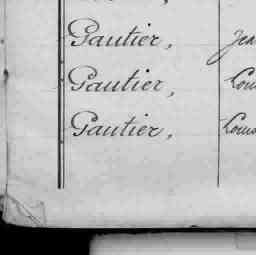 Gautier, Jea
Gautier, Lou
Gautier, Louis